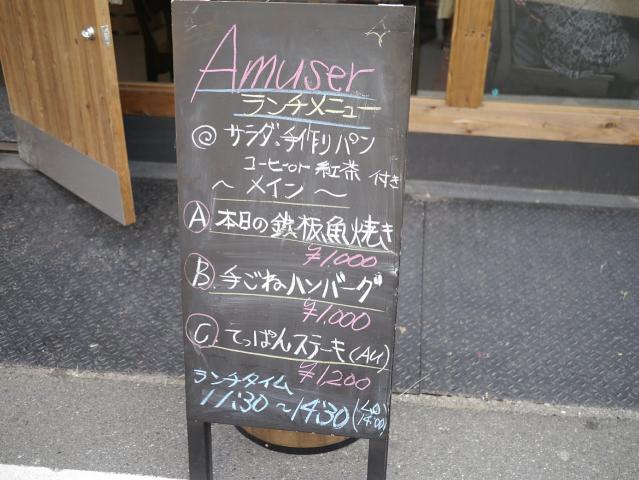 Amuser
ランチメニュー
サラダ、手作りパン
コーヒーor紅茶 付き
~ メイン ~
A 本日の鉄板魚焼き
¥1000
B. 手ごねハンバーグ
¥1,000
C. てっぱんステーキ(AU)
¥1,200
ランチタイム
11:30~14:30 (L.O. 14:00)